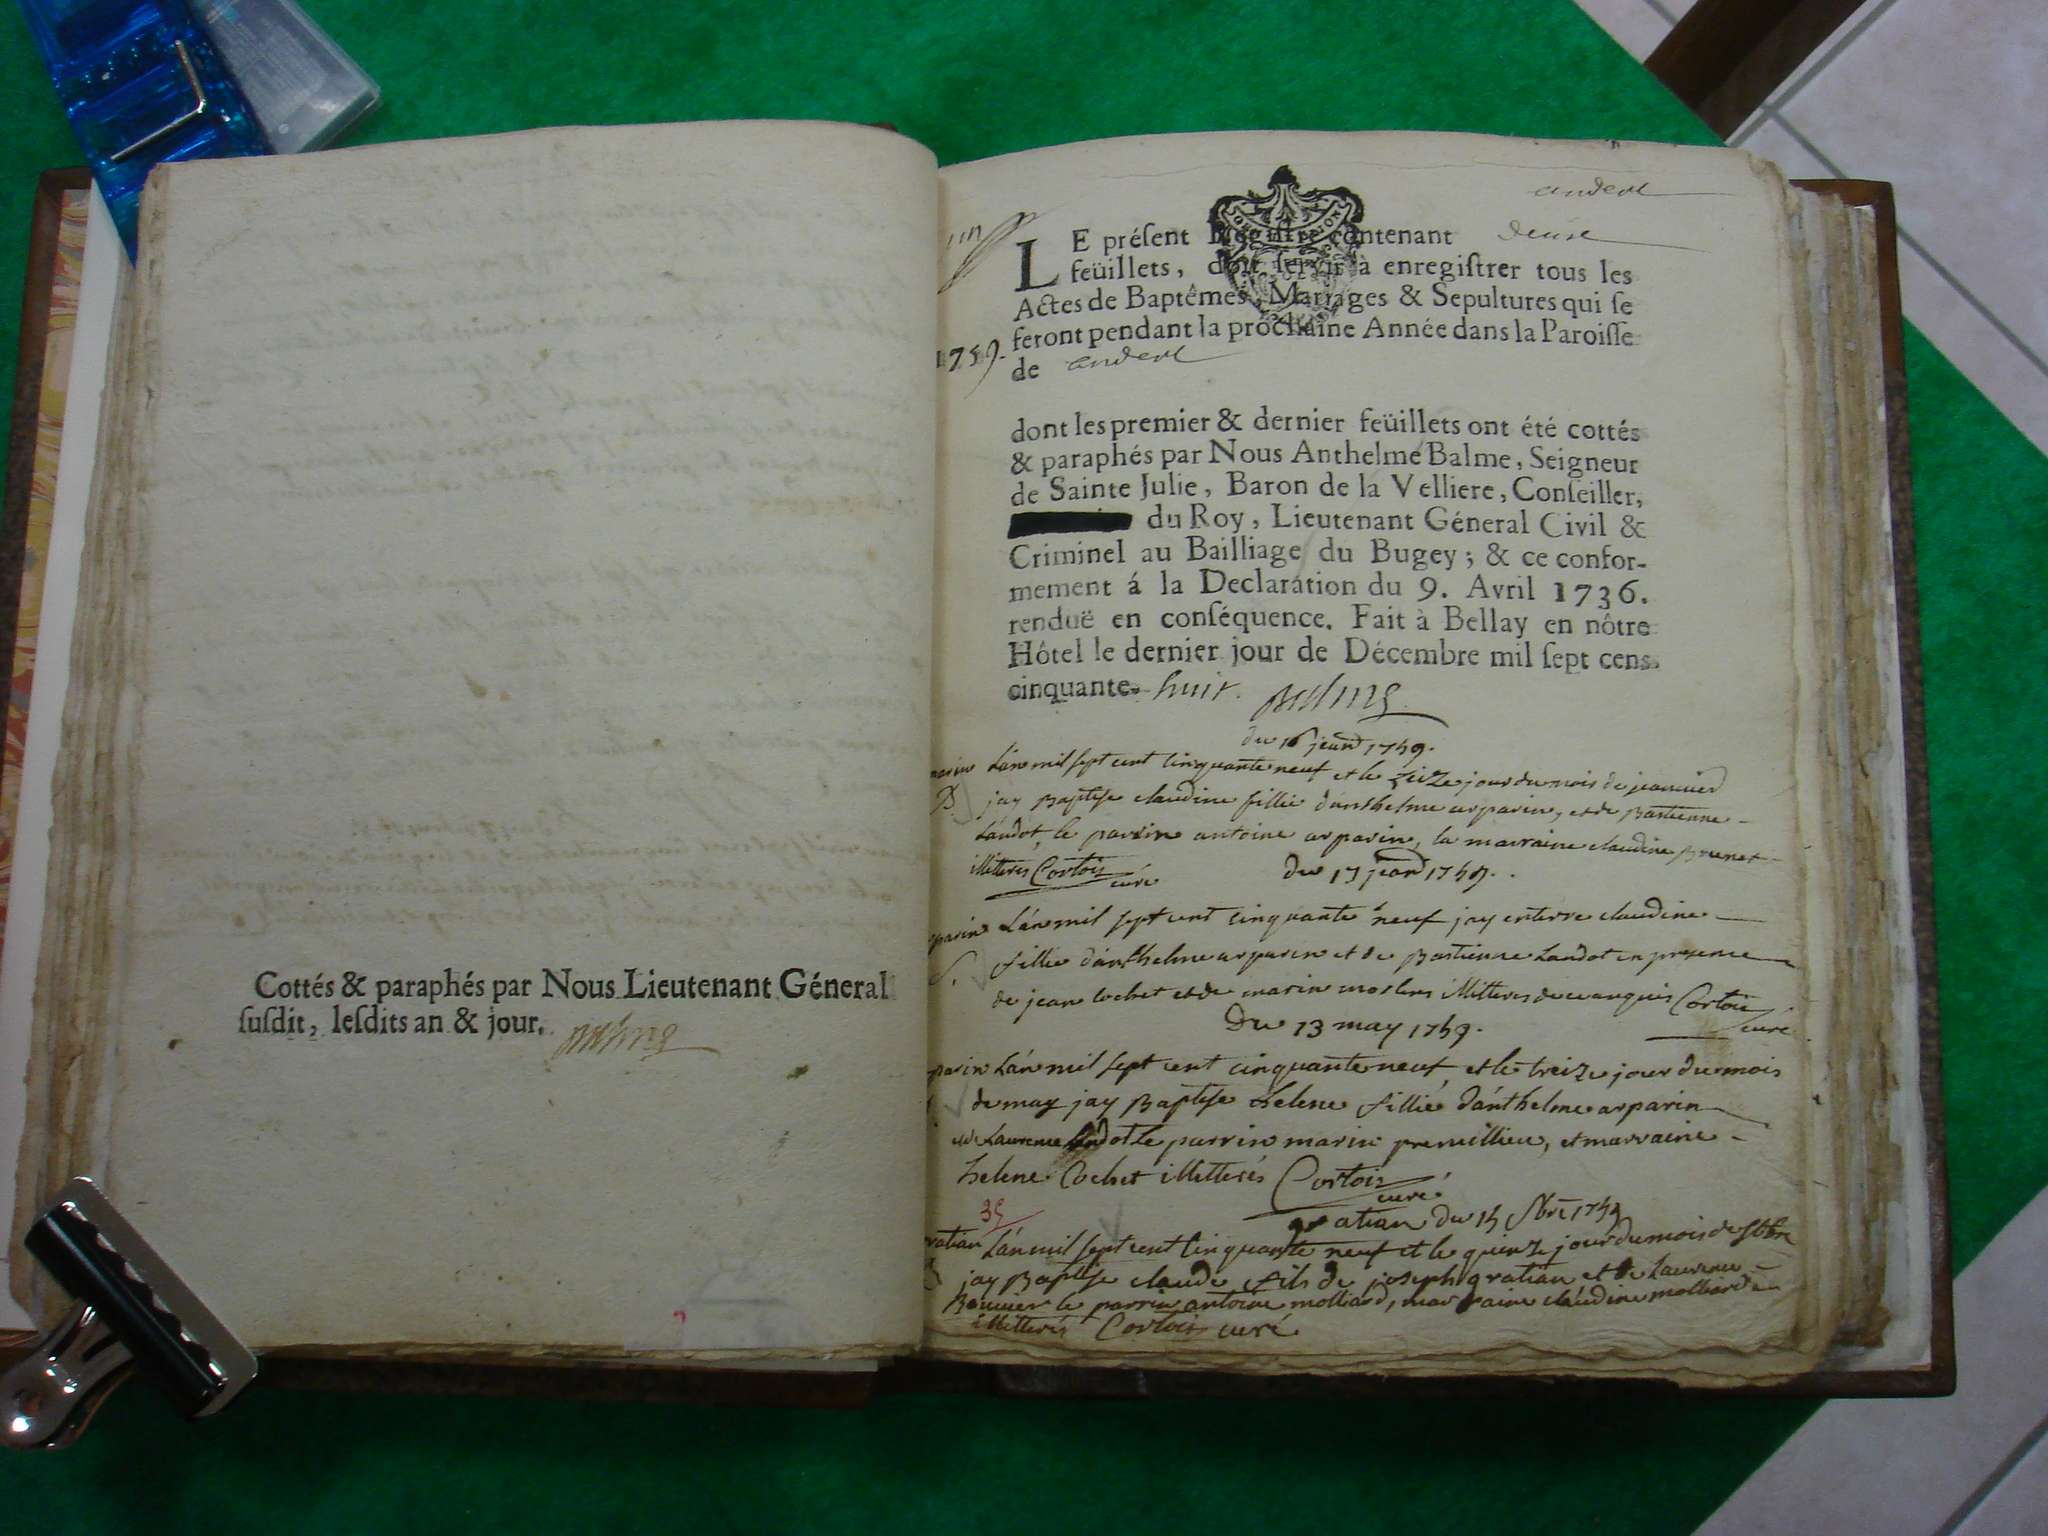 Cottés & paraphés par Nous Lieutenant Géneral
susdit, lesdits an & jour.
anderl
1759.
LE présent Registre contenant deuse
feüillets, doit servir à enregistrer tous les
Actes de Baptêmes, Mariages & Sepultures qui se
feront pendant la prochaine Année dans la Paroisse
de anderl
dont les premier & dernier feüillets ont été cottés
& paraphés par Nous Anthelme Balme, Seigneur
de Sainte Julie, Baron de la Velliere, Conseiller,
du Roy, Lieutenant Géneral Civil &
Criminel au Bailliage du Bugey; & ce confor-
mement á la Declaration du 9. Avril 1736.
renduë en conséquence. Fait à Bellay en nôtre
Hôtel le dernier jour de Décembre mil sept cens
cinquante- huit. Balme
du 16 jeanv 1759.
L'an mil sept cent cinquante neuf et le seize jour du mois de jeanvier
jay Baptise claudine fillie d'anthelme arparin, et de Bastienne
Landot, le parrin antoine arparin, la marraine claudine Brunet
illitteres Cortois curé
du 17 jeanv 1759.
L'an mil sept cent cinquante neuf jay enterre claudine
fillie d'anthelme arparin et de Bastienne Landot en presence
de jean Cochet et de marin illitteres de ce enquis Cortois
curé
Du 13 may 1759.
L'an mil sept cent cinquante neuf, et le treize jour du mois
de may jay Baptise helene fillie d'anthelme arparin
et de Laurence Landot le parrin marin premillieu, et marraine
helene Cochet illitterés Cortois
curé
35
gratian du 15 8bre 1759
gratian L'an mil sept cent cinquante neuf et le quinze jour du mois de 8bre
jay Baptise claude fils de joseph gratian et de Laurence
Bouvier le parrin antoine molliard, marraine claudine molliard
illitterés Cortois curé